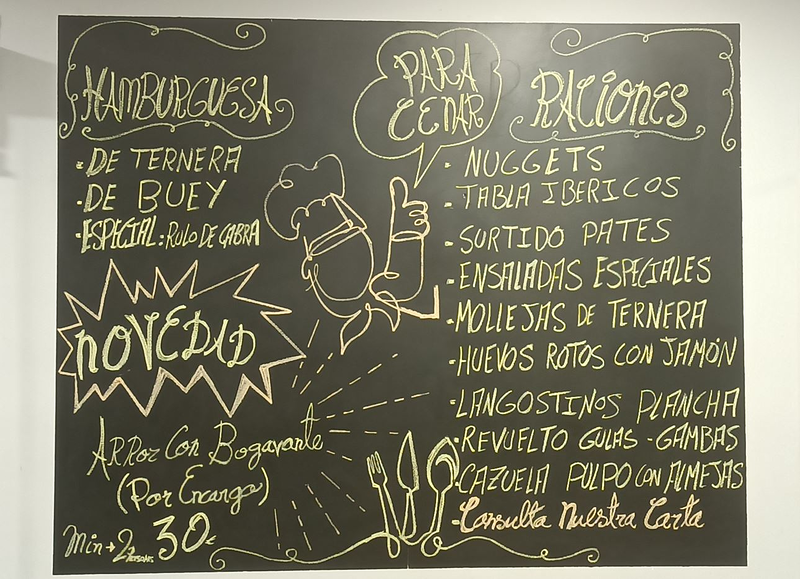 HAMBURGUESA
·DE TERNERA
·DE BUEY
·ESPECIAL: RULO DE CABRA
NOVEDAD
ARRoz Con Bogavante
(Por Encargo)
Min→2 PERSONAS 30€
PARA
CENAR
RACIONES
· NUGGETS
·TABLA IBERICOS
·SURTIDO PATES
·ENSALADAS ESPECIALES
·MOLLEJAS DE TERNERA
·HUEVOS ROTOS CON JAMÓN
·LANGOSTINOS PLANCHA
·REVUELTO GULAS-GAMBAS
·CAZUELA PULPO CON ALMEJAS
-Consulta Nuestra Carta